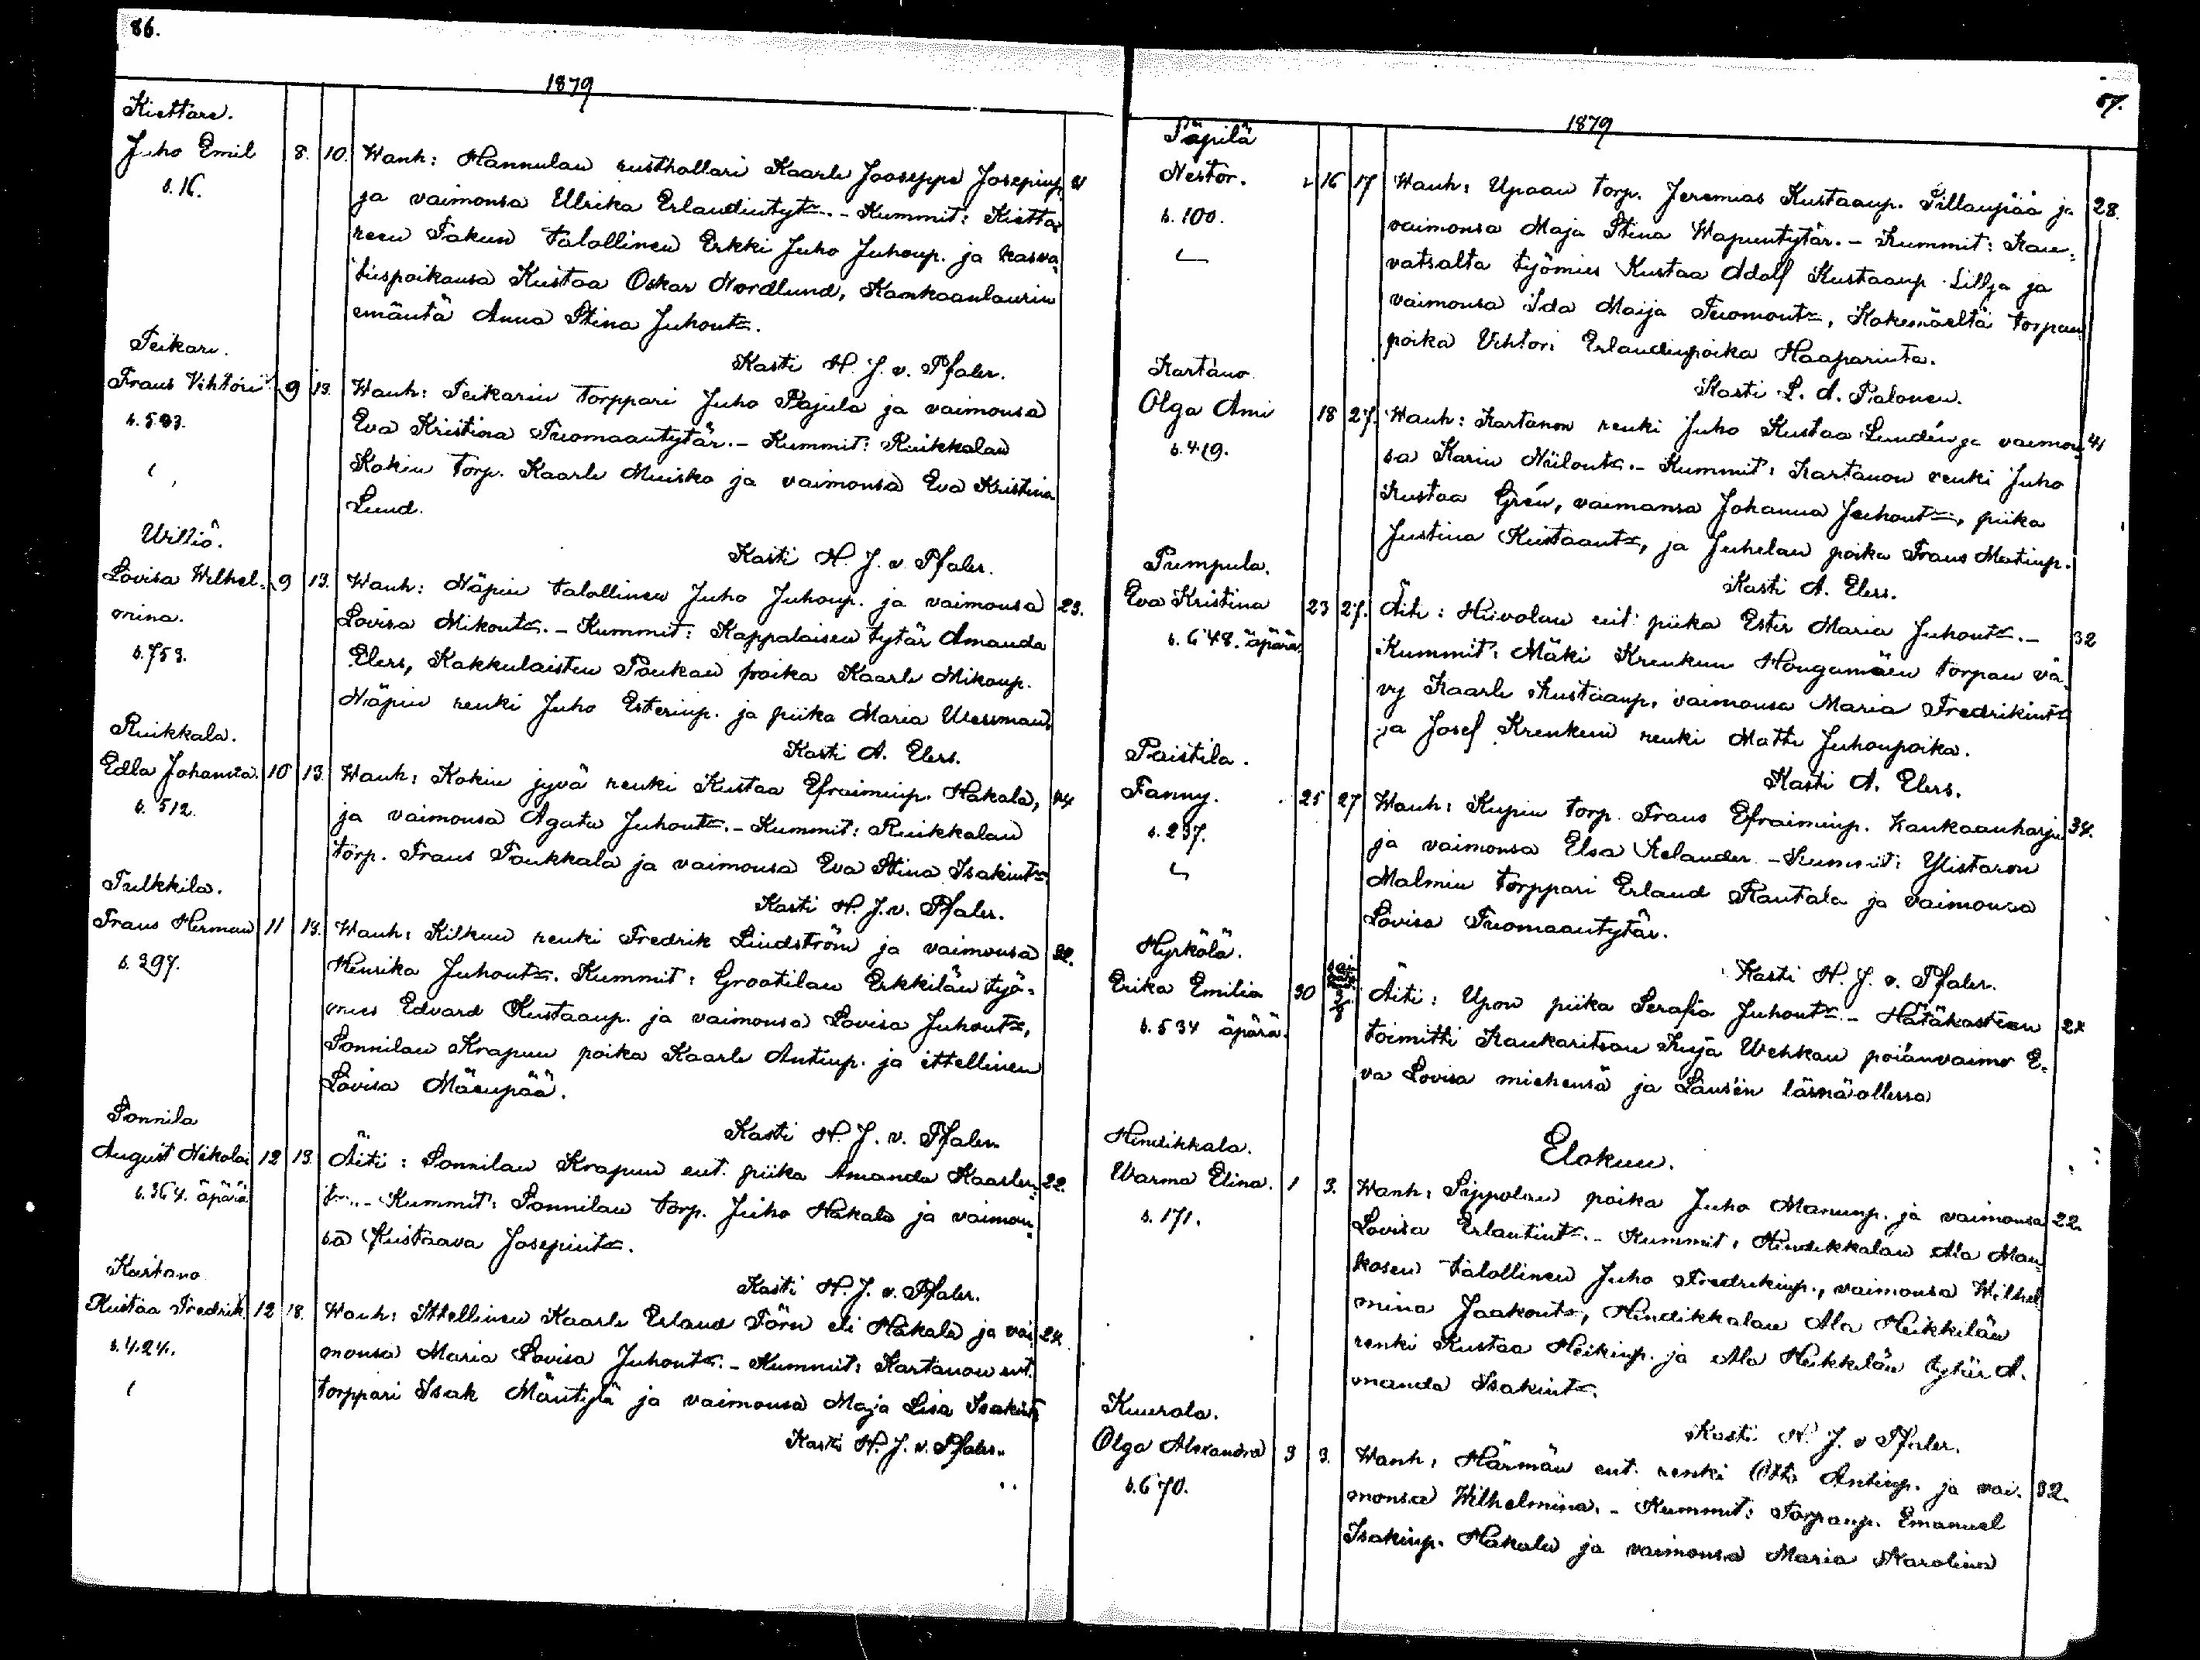 86.
1879
Kiettare.
Juho Emil 8. 10. Wanh: Hannulan rusthollari Kaarle Jooseppi Josepinp.
s. 16. ja vaimonsa Ullrika Erlandintyt. - Kummit: Kietta-
reen Takun talollinen Erkki Juho Juhonp. ja kasva-
tuspoikansa Kustaa Oskar Nordlund, Kankaanlaurin
emäntä Anna Stina Juhont.
Kasti H. J. v. Pfaler.
Teikari.
Frans Vihtori 9 13. Wanh: Teikarin torppari Juho Pajula ja vaimonsa
s. 593. Eva Kristina Tuomaantytär. - Kummit: Ruikkalan
Kokin torp. Kaarle Muisko ja vaimonsa Eva Kristina
Lund.
Kasti H. J. v. Pfaler.
Williö.
Lovisa Wilhel- 9 13. Wanh: Näpin talollinen Juho Juhonp. ja vaimonsa 23.
mina. Lovisa Mikont. - Kummit: Kappalaisen tytär Amanda
s. 753. Elers, Kakkulaisten Paukan poika Kaarle Mikonp.
Näpin renki Juho Esterinp. ja piika Maria Wessman.
Kasti A. Elers.
Ruikkala.
Edla Johanna. 10 13. Wanh: Kokin jyvä renki Kustaa Efraiminp. Hakala, 44
s. 512. ja vaimonsa Agata Juhont. - Kummit: Ruikkalan
torp. Frans Paukkala ja vaimonsa Eva Stina Isakint.
Kasti H. J. v. Pfaler.
Tulkkila.
Frans Herman 11 13. Wanh: Kilkun renki Fredrik Lindström ja vaimonsa 32.
s. 297. Henrika Juhont. Kummit: Grootilan Erkkilän työ-
mies Edvard Kustaanp. ja vaimonsa Lovisa Juhont,
Sonnilan Krapun poika Kaarle Antinp. ja ittellinen
Lovisa Mäenpää.
Kasti H. J. v. Pfaler.
Sonnila
August Nikolai 12 13. Äiti: Sonnilan Krapun ent. piika Amanda Kaarlen- 22.
s. 364. äpärä t. - Kummit: Sonnilan torp. Juho Hakala ja vaimon-
sa Kustaava Josepint.
Kasti H. J. v. Pfaler.
Kartano
Kustaa Fredrik 12 18. Wanh: Ittellinen Kaarle Erland Törn eli Hakala ja vai- 24.
s. 424. monsa Maria Lovisa Juhont. - Kummit: Kartanon ent.
torppari Isak Mäntylä ja vaimonsa Maja Lisa Isakint
Kasti H. J. v. Pfaler.
87.
1879
Päpilä
Nestor. 16 17 Wanh: Upaan torp. Jeremias Kustaanp. Pillanpää ja 28.
s. 100. vaimonsa Maja Stina Wapuntytär. - Kummit: Kau-
vatsalta työmies Kustaa Adolf Kustaanp. Lillja ja
vaimonsa Ida Maija Tuomont, Kokemäeltä torpan
poika Vihtori Erlandinpoika Haaparinta.
Kasti L. A. Palonen.
Kartano
Olga Ami 18 27. Wanh: Kartanon renki Juho Kustaa Lundén ja vaimon- 41
s. 419. sa Karin Niilont. - Kummit: Kartanon renki Juho
Kustaa Grén, vaimonsa Johanna Juhont, piika
Justina Kustaant, ja Juhelan poika Frans Matinp.
Kasti A. Elers.
Pumpula.
Eva Kristina 23 27. Äiti: Hiivolan ent. piika Ester Maria Juhont. - 32
s. 648. äpärä Kummit: Mäki Krenkun Hongamäen torpan vä-
vy Kaarle Kustaanp. vaimonsa Maria Fredrikint
ja Josef Krenkun renki Matti Juhonpoika.
Kasti A. Elers.
Paistila.
Fanny. 25 27 Wanh: Kupin torp. Frans Efraiminp. Kankaanharju 34.
s. 237. ja vaimonsa Elsa Kelander. - Kummit: Ylistaron
Malmin torppari Erland Rautala ja vaimonsa
Lovisa Tuomaantytär.
Kasti H. J. v. Pfaler.
Hyrkölä.
Erika Emilia 30 Äiti: Upon piika Serafia Juhont. - Hätäkasteen 24
s. 534 äpärä. toimitti Kaukaritsan Kuja Wehkan poianvaimo E-
va Lovisa miehensä ja Lausén läsnäollessa
Elokuu.
Hindikkala.
Warma Elina. 1 3. Wanh: Sippolan poika Juho Manunp. ja vaimonsa 22.
s. 171. Lovisa Erlantint. - Kummit: Hindikkalan Ala Mau-
kosen talollinen Juho Fredrikinp., vaimonsa Wilhel
mina Jaakont, Hindikkalan Ala Heikkilän
renki Kustaa Heikinp. ja Ala Heikkilän tytär A-
manda Isakint.
Kasti H. J. v Pfaler.
Kuurola.
Olga Alexandra 3 3. Wanh: Härmän ent. renki Otto Antinp. ja vai- 32.
s. 670. monsa Wilhelmina. - Kummit: Torpanp. Emanuel
Isakinp. Hakala ja vaimonsa Maria Karolina